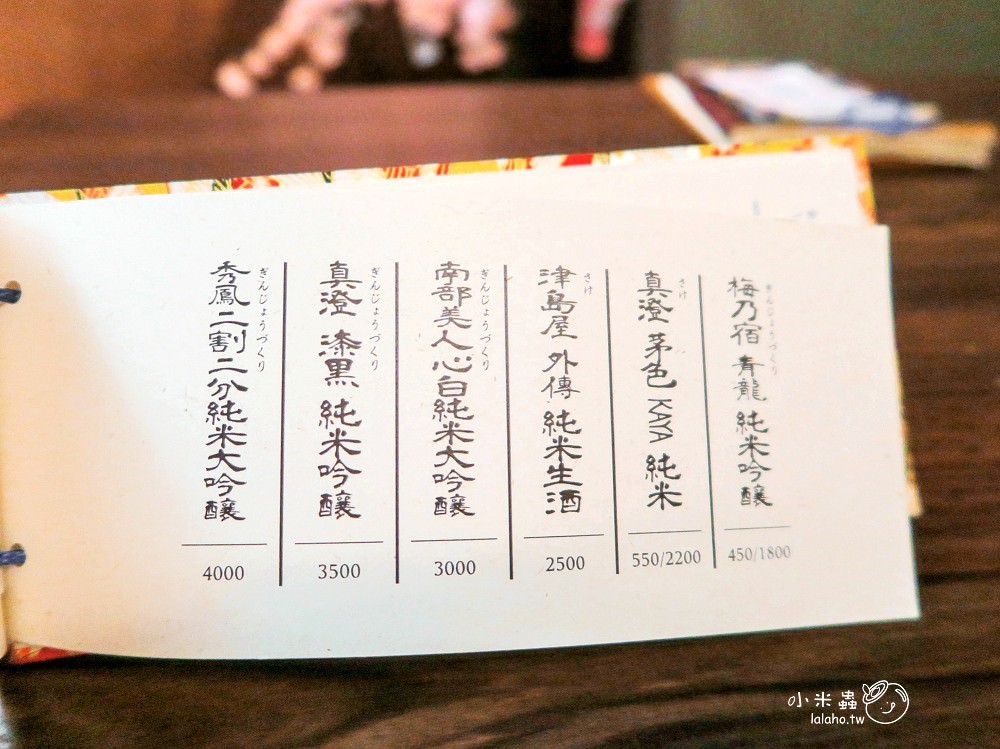 梅乃宿 青龍 純米吟釀
ぎんじょうづくり
450/1800
真澄 茅色 KAYA 純米
さけ
550/2200
津島屋 外傳 純米生酒
さけ
2500
南部美人心白純米大吟釀
ぎんじょうづくり
3000
真澄 漆黒 純米吟釀
ぎんじょうづくり
3500
秀鳳二割二分純米大吟釀
ぎんじょうづくり
4000
小米蟲
lalaho.tw